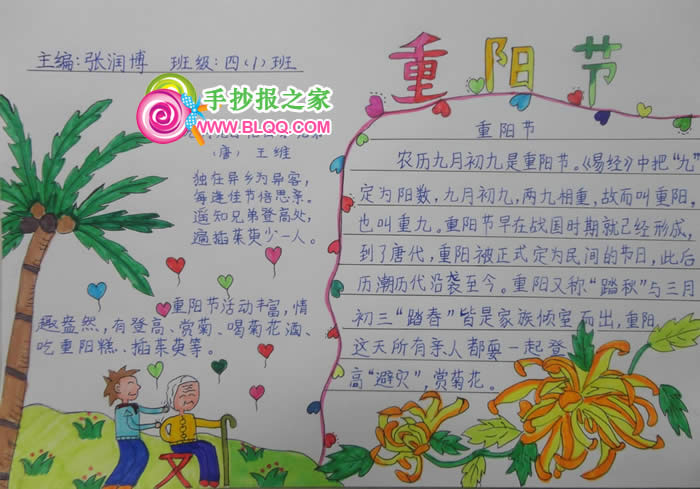 主编：张润博 班级：四(1)班
重阳节
手抄报之家
WWW.BLQQ.COM
(唐) 王维
独在异乡为异客，
每逢佳节倍思亲。
遥知兄弟登高处，
遍插茱萸少一人。
重阳节活动丰富，情
趣盎然，有登高、赏菊、喝菊花酒、
吃重阳糕、插茱萸等。
重阳节
农历九月初九是重阳节。《易经》中把“九”
定为阳数，九月初九，两九相重，故而叫重阳，
也叫重九。重阳节早在战国时期就已经形成，
到了唐代，重阳被正式定为民间的节日，此后
历潮历代沿袭至今。重阳又称“踏秋”与三月
初三“踏春”皆是家族倾室而出，重阳
这天所有亲人都要一起登
高“避灾”，赏菊花。